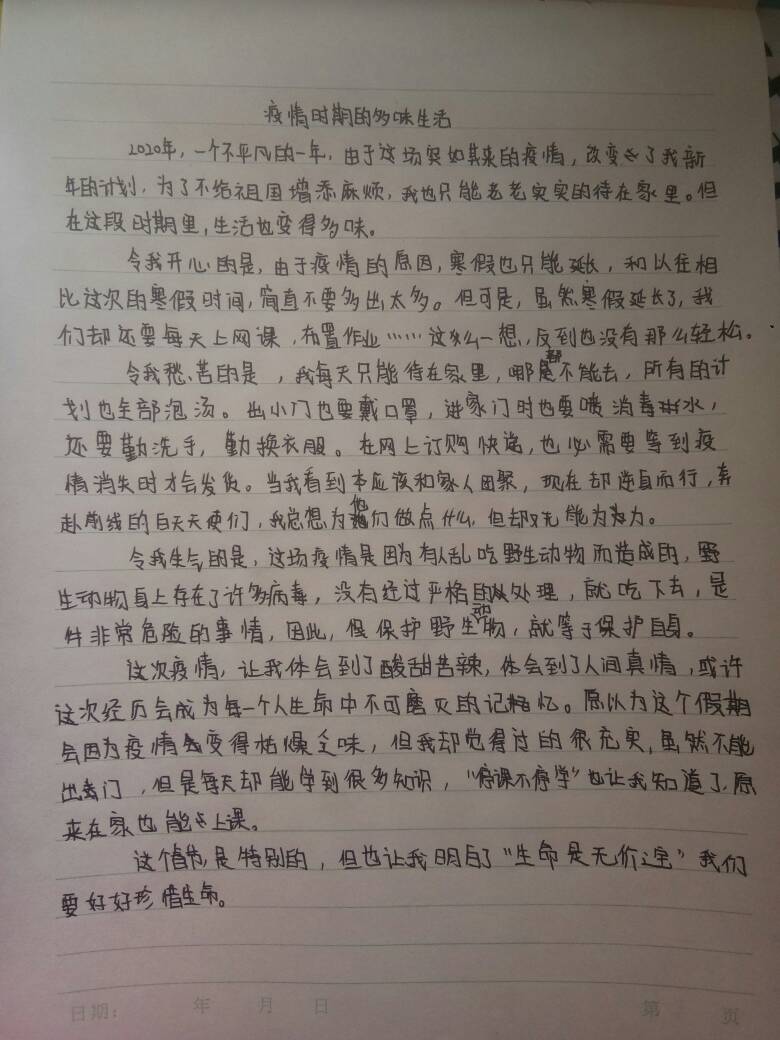 疫情时期的多味生活
2020年，一个不平凡的一年，由于这场突如其来的疫情，改变了我新
年的计划，为了不给祖国增添麻烦，我也只能老老实实的待在家里。但
在这段时期里，生活也变得多味。
令我开心的是，由于疫情的原因，寒假也只能延长，和以往相
比这次的寒假时间，简直不要多出太多。但可是，虽然寒假延长了，我
们却还要每天上网课，布置作业……这么一想，反到也没有那么轻松。
令我愁苦的是，我每天只能待在家里，哪都不能去，所有的计
划也全部泡汤。出小门也要戴口罩，进家门时也要喷消毒水，
还要勤洗手，勤换衣服。在网上订购快递，也必需要等到疫
情消失时才会发货。当我看到本应该和家人团聚，现在却逆身而行，奔
赴前线的白天天使们，我总想为他们做点什么，但却又无能为力。
令我生气的是，这场疫情是因为有人乱吃野生动物而造成的，野
生动物身上存在了许多病毒，没有经过严格的处理，就吃下去，是
件非常危险的事情，因此，保护野生动物，就等于保护自身。
这次疫情，让我体会到了酸甜苦辣，体会到了人间真情，或许
这次经历会成为每一个人生命中不可磨灭的记忆。原以为这个假期
会因为疫情变得枯燥乏味，但我却觉得过的很充实，虽然不能
出门，但是每天却能学到很多知识，“停课不停学”也让我知道了，原
来在家也能上课。
这个春节是特别的，但也让我明白了“生命是无价之宝”我们
要好好珍惜生命。
日期： 年 月 日 第 页